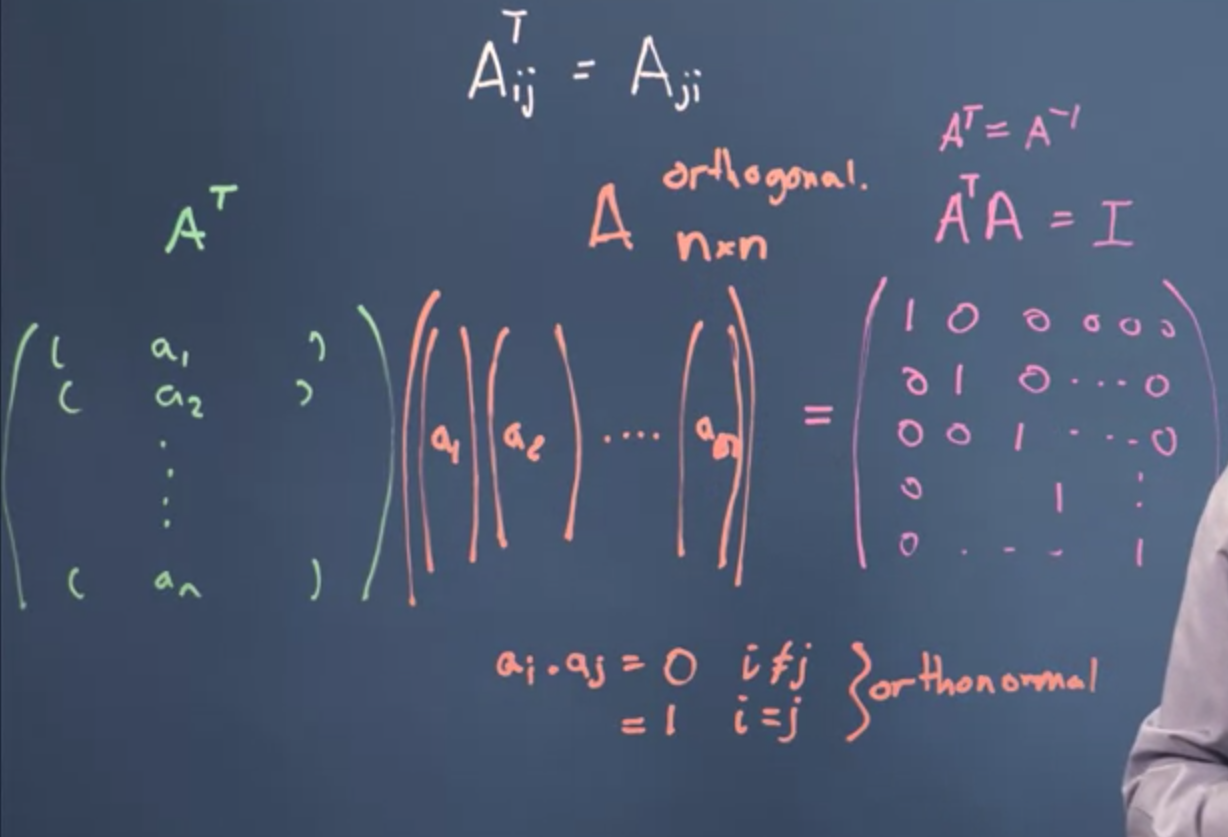 Aᵀij = Aji
Aᵀ = A⁻¹
orthogonal.
Aᵀ A n×n AᵀA = I
( a₁ )
( a₂ )
⋮
( aₙ )
a₁ a₂ .... aₙ
=
1 0 0 0 0 0
0 1 0 ... 0
0 0 1 ... 0
0 1 ⋮
0 . - - 1
aᵢ . aⱼ = 0 i ≠ j } orthonormal
= 1 i = j